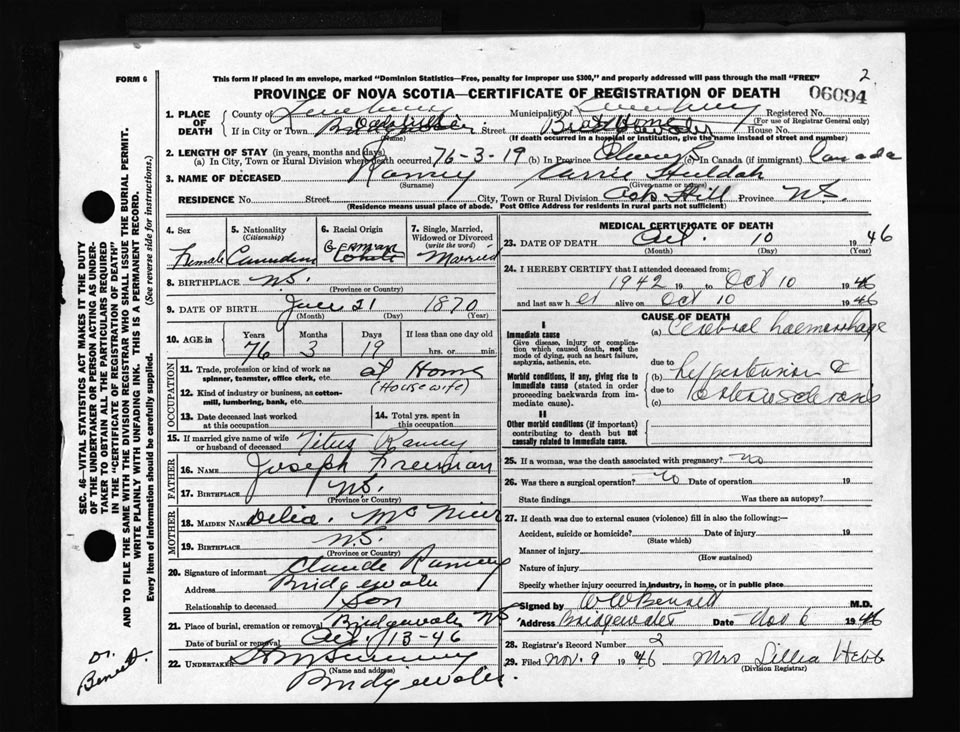 2
FORM 6
This form if placed in an envelope, marked "Dominion Statistics—Free, penalty for improper use $300," and properly addressed will pass through the mail "FREE"
PROVINCE OF NOVA SCOTIA—CERTIFICATE OF REGISTRATION OF DEATH
06094
1. PLACE OF DEATH
County of Lunenburg Municipality of Lunenburg Registered No.
(For use of Registrar General only)
If in City or Town Bridgewater Street (Name) House No.
(If death occurred in a hospital or institution, give the name instead of street and number)
2. LENGTH OF STAY (in years, months and days)
(a) In City, Town or Rural Division where death occurred 76-3-19 (b) In Province Always (c) In Canada (if immigrant) Canada
3. NAME OF DECEASED Ramey Carrie Huldah
(Surname) (Given name or names)
RESIDENCE No. Street City, Town or Rural Division Oak Hill Province N.S.
(Residence means usual place of abode. Post Office Address for residents in rural parts not sufficient)
4. Sex Female
5. Nationality (Citizenship) Canadian
6. Racial Origin German White
7. Single, Married, Widowed or Divorced (write the word) Married
8. BIRTHPLACE N.S.
(Province or Country)
9. DATE OF BIRTH June 21 1870
(Month) (Day) (Year)
10. AGE in Years Months Days If less than one day old
76 3 19 hrs. or min.
OCCUPATION
11. Trade, profession or kind of work as spinner, teamster, office clerk, etc. at Home
12. Kind of industry or business, as cotton-mill, lumbering, bank, etc. (Housewife)
13. Date deceased last worked at this occupation
14. Total yrs. spent in this occupation
15. If married give name of wife or husband of deceased Titus Ramey
FATHER
16. NAME Joseph Freeman
17. BIRTHPLACE N.S.
(Province or Country)
MOTHER
18. MAIDEN NAME Delia
19. BIRTHPLACE N.S.
(Province or Country)
20. Signature of informant Claude Ramey
Address Bridgewater
Relationship to deceased Son
21. Place of burial, cremation or removal Bridgewater N.S.
Date of burial or removal Oct. 13-46
22. UNDERTAKER
(Name and address)
Bridgewater.
MEDICAL CERTIFICATE OF DEATH
23. DATE OF DEATH Oct. 10 1946
(Month) (Day) (Year)
24. I HEREBY CERTIFY that I attended deceased from:
1942 19 to Oct 10 1946
and last saw her alive on Oct 10 1946
CAUSE OF DEATH
I
Immediate cause
Give disease, injury or complication which caused death, not the mode of dying, such as heart failure, asphyxia, asthenia, etc.
(a) Cerebral haemorrhage
due to
Morbid conditions, if any, giving rise to immediate cause (stated in order proceeding backwards from immediate cause).
(b) hypertension &
due to
(c) arteriosclerosis
II
Other morbid conditions (if important) contributing to death but not causally related to immediate cause.
25. If a woman, was the death associated with pregnancy? no
26. Was there a surgical operation? no Date of operation 19
State findings Was there an autopsy?
27. If death was due to external causes (violence) fill in also the following:—
Accident, suicide or homicide? Date of injury 19
(State which)
Manner of injury
(How sustained)
Nature of injury
Specify whether injury occurred in industry, in home, or in public place
Signed by W W Bennett M.D.
Address Bridgewater Date Nov 6 1946
28. Registrar's Record No. 2
29. Filed Nov. 9 1946 Mrs Lillia Hebb
(Division Registrar)
SEC. 46—VITAL STATISTICS ACT MAKES IT THE DUTY OF THE UNDERTAKER OR PERSON ACTING AS UNDERTAKER TO OBTAIN ALL THE PARTICULARS REQUIRED IN THE "CERTIFICATE OF REGISTRATION OF DEATH"
AND TO FILE THE SAME WITH THE DIVISION REGISTRAR WHO SHALL ISSUE THE BURIAL PERMIT.
WRITE PLAINLY WITH UNFADING INK. THIS IS A PERMANENT RECORD.
Every item of information should be carefully supplied. (See reverse side for instructions.)
Dr. Benett.